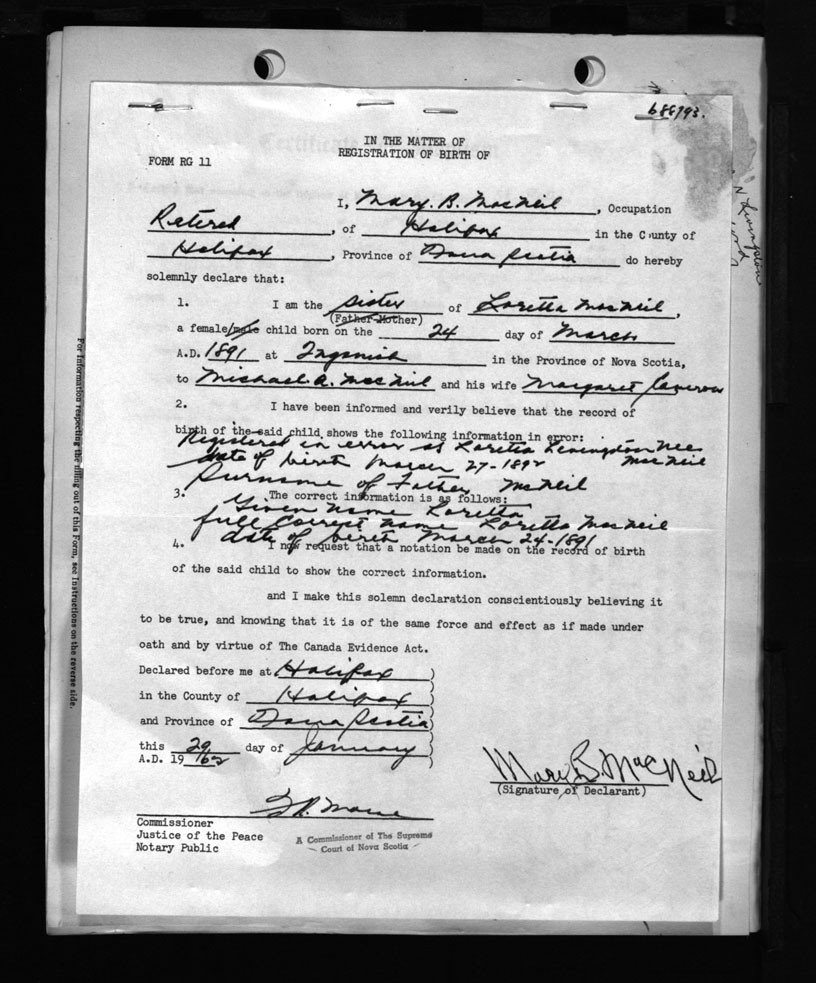 688793.
IN THE MATTER OF
REGISTRATION OF BIRTH OF
FORM RG 11
I, Mary. B. MacNeil, Occupation
Retired, of Halifax in the County of
Halifax, Province of Nova Scotia do hereby
solemnly declare that:
1. I am the sister of Loretta MacNeil,
(Father-Mother)
a female/male child born on the 24 day of March
A.D. 1891 at Ingonish in the Province of Nova Scotia,
to Michael A. MacNeil and his wife Margaret
2. I have been informed and verily believe that the record of
birth of the said child shows the following information in error:
Registered in error as Loretta Levingston nee
date of birth March 27-1892 MacNeil
Surname of Father McNeil
3. The correct information is as follows:
Given name Loretta
full Correct name Loretta MacNeil
date of birth March 24-1891
4. I now request that a notation be made on the record of birth
of the said child to show the correct information.
and I make this solemn declaration conscientiously believing it
to be true, and knowing that it is of the same force and effect as if made under
oath and by virtue of The Canada Evidence Act.
Declared before me at Halifax )
in the County of Halifax )
and Province of Nova Scotia )
this 29 day of January )
A.D. 1962 )
Mary B. MacNeil
(Signature of Declarant)
Commissioner
Justice of the Peace
Notary Public
A Commissioner of The Supreme
Court of Nova Scotia
For Information respecting the filling out of this Form, see Instructions on the reverse side.